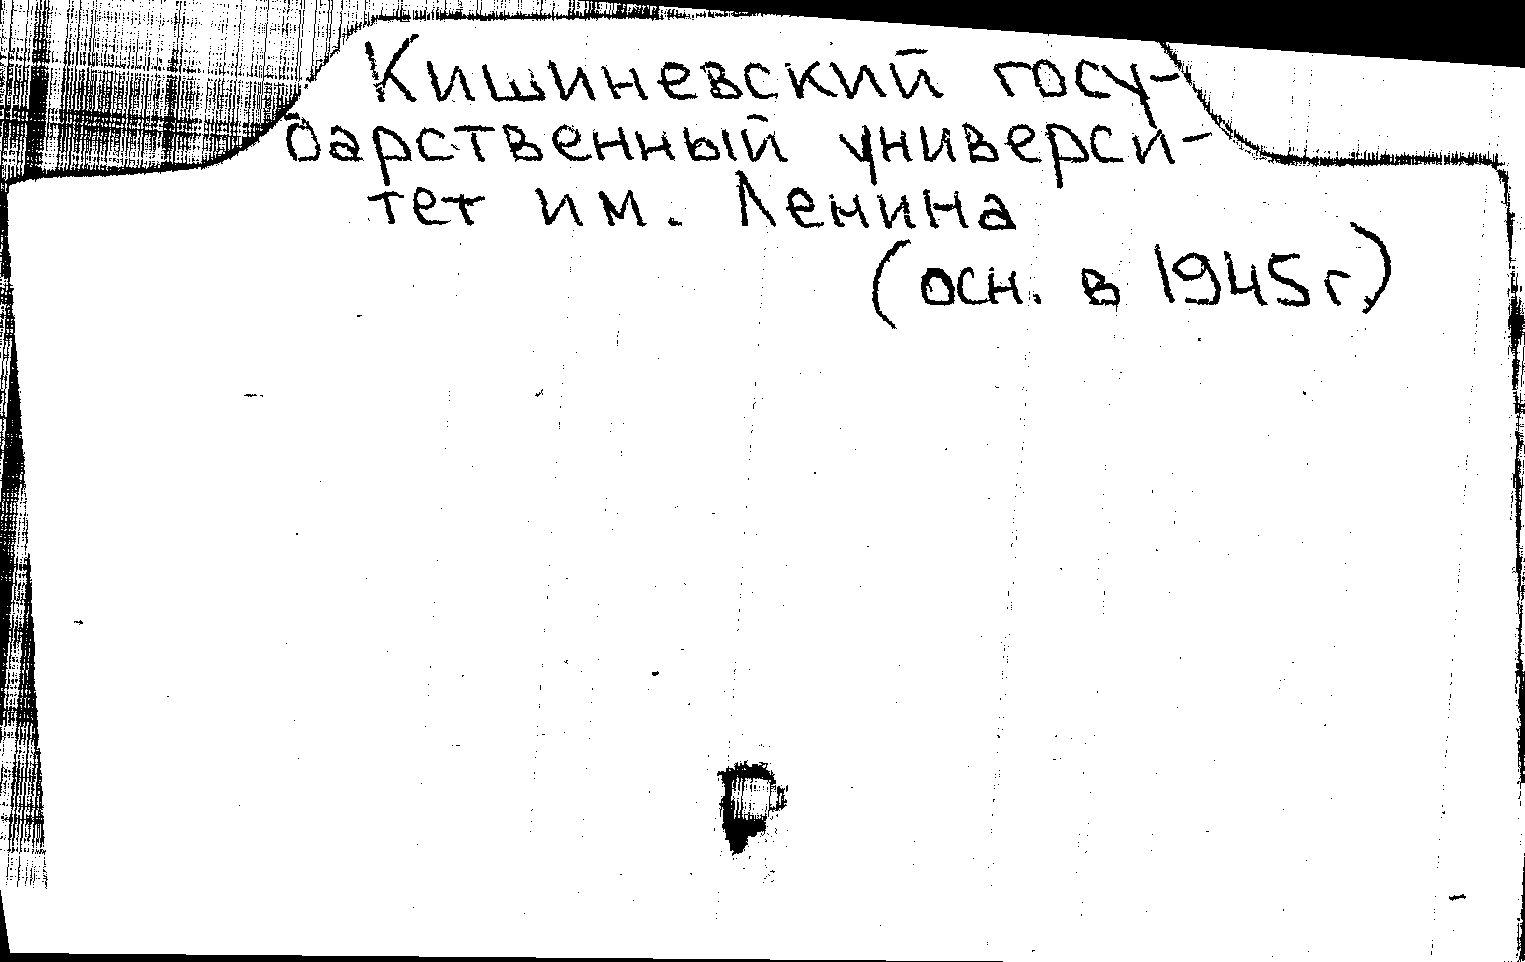 Кишиневский госу-
дарственный универси-
тет им. Ленина
(осн. в 1945 г.)